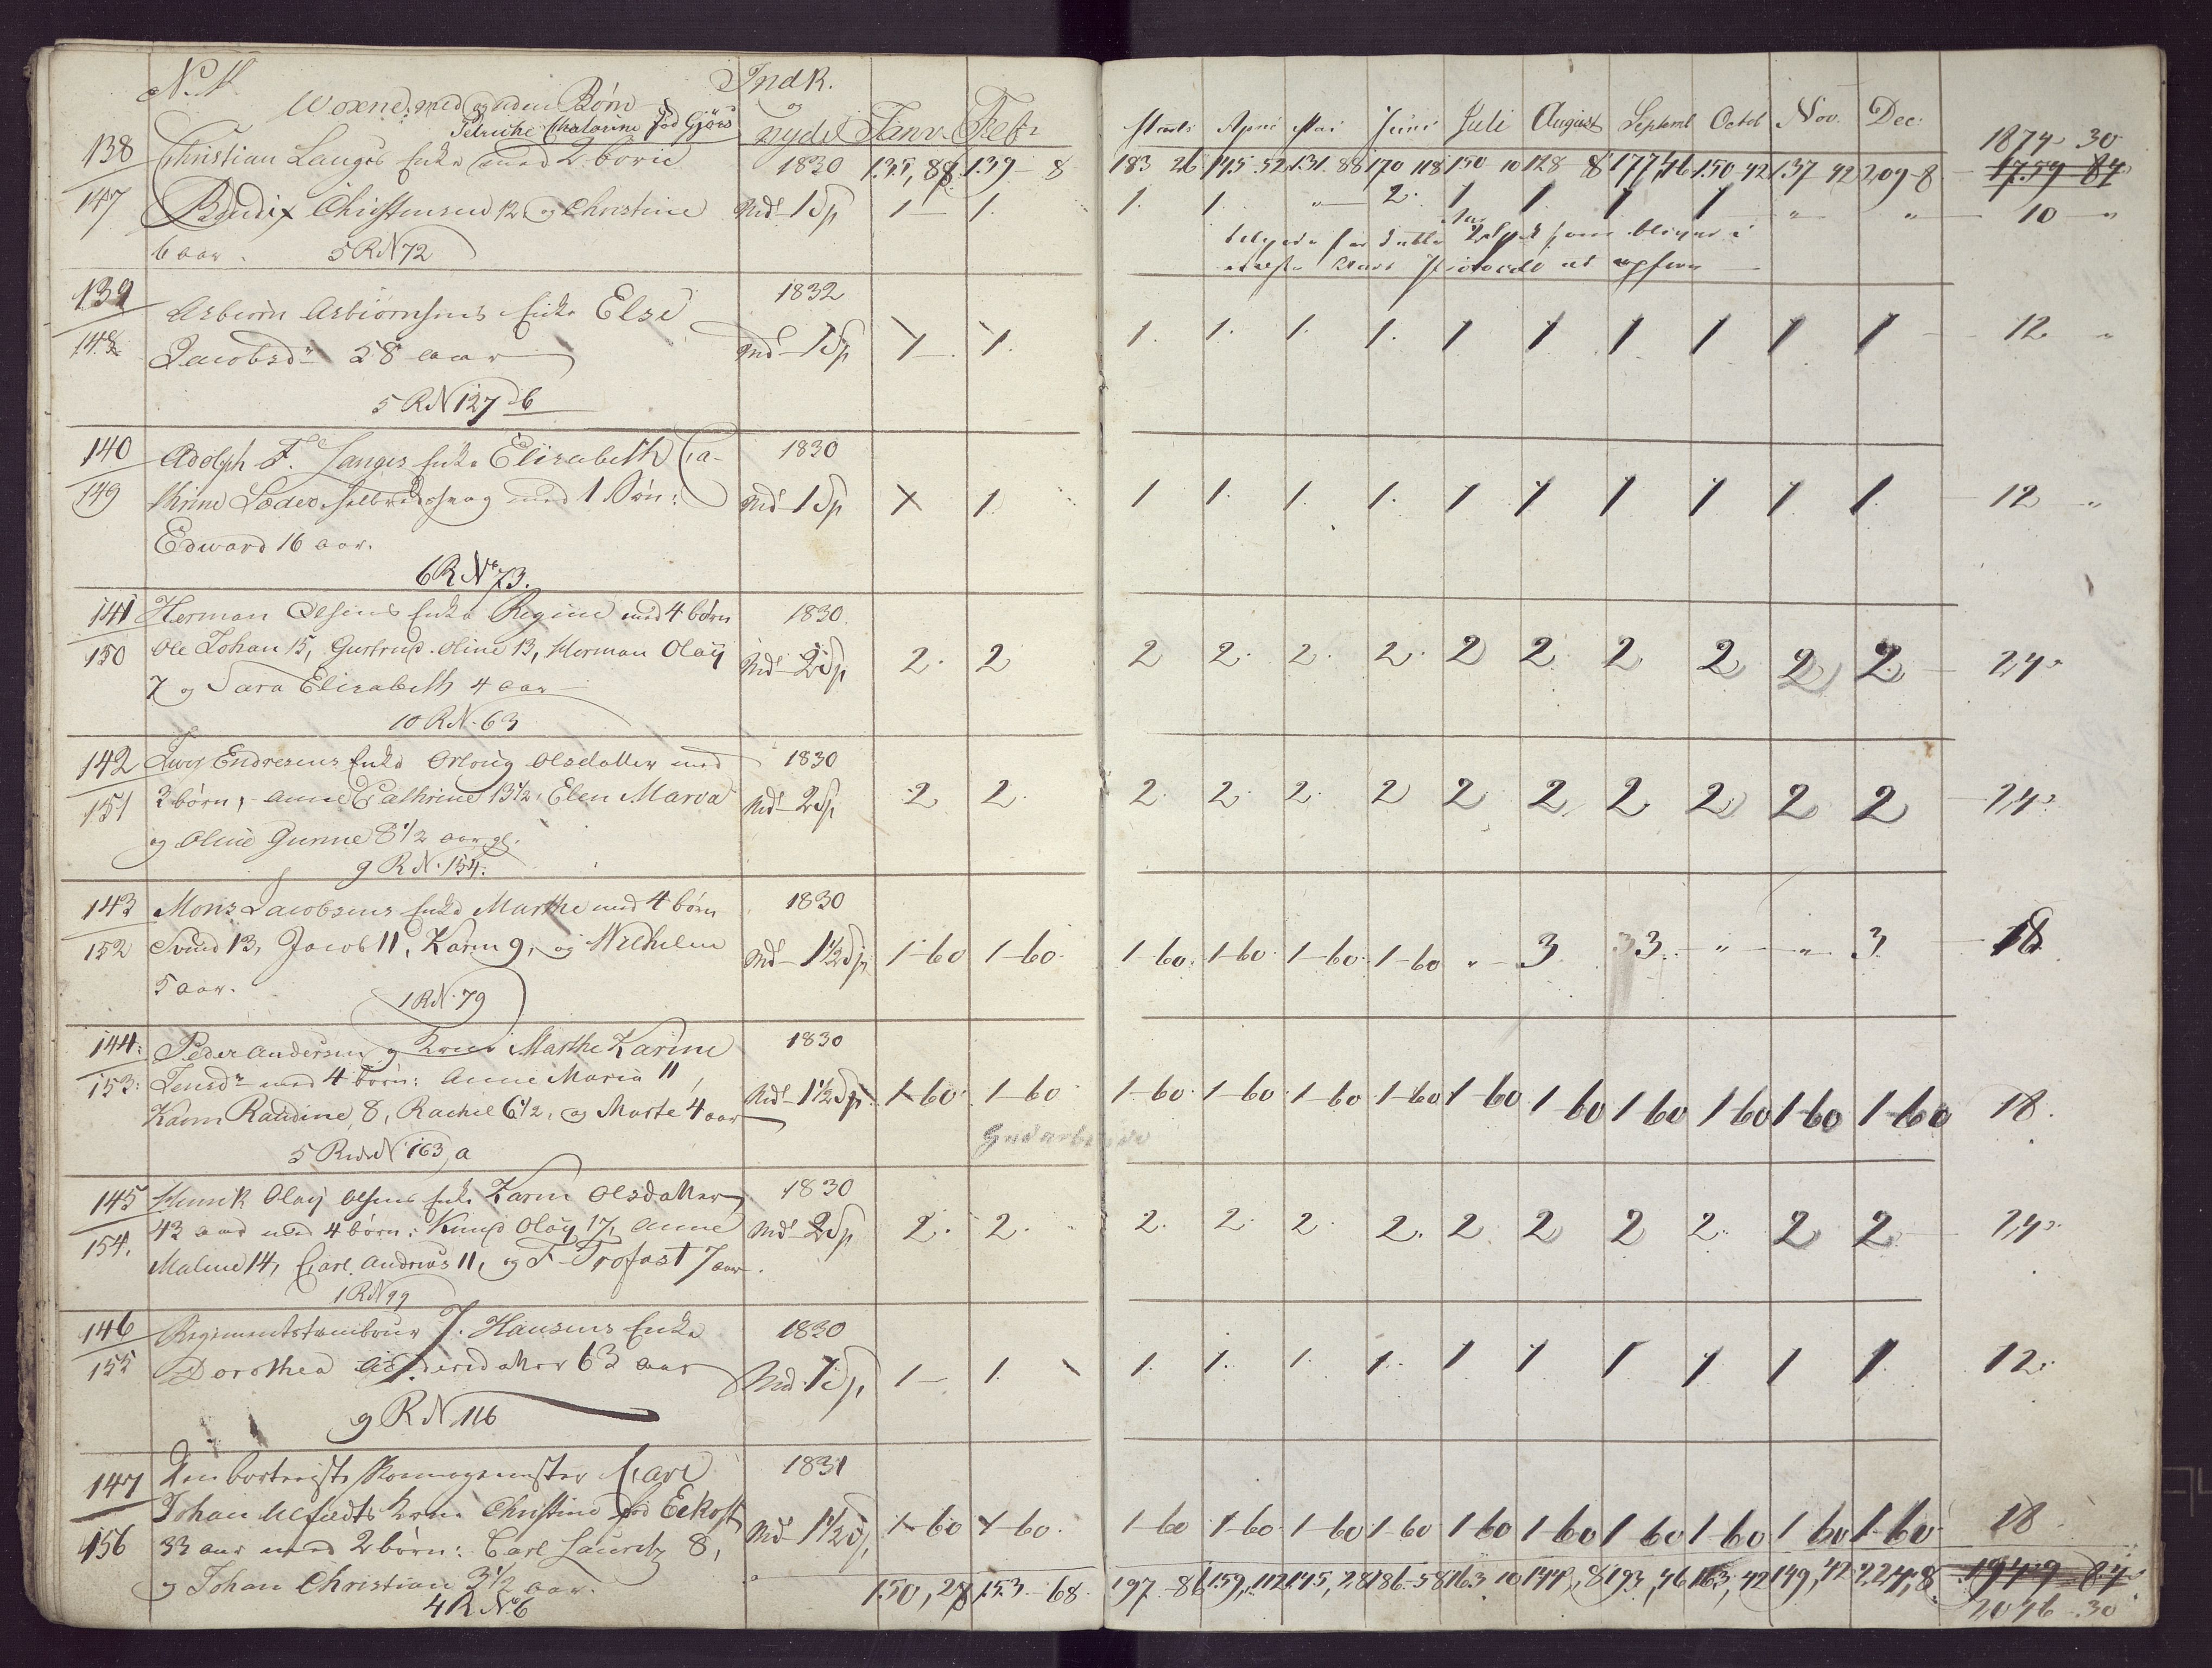 Woxne, med og uden Børn Indk. og nyder Janv. Febr. Marts April Mai Juni Juli August Septemb Octob Nov. Dec.
Petriche Chatarine fød Giörs
138 Christian Langes Enke med 2 børn 1830 135, 88 139 - 8 183 26 145 52 131 88 170 118 150 10 128 8 177, 46 150 42 137 42 209-8 1874 - 30
1759 84
147 Bendix Christensen 12 og Christine Md 1 Sp 1 1. 1. 1. " 2. 1 1 1 1 " " 10 "
6 aar. 5 R N 72
139 Asbiørn Asbiørnsens Enke Else 1832
148 Jacobsdr 58 aar Md 1 Sp 1 1. 1. 1. 1. 1. 1 1 1 1 1 1 12 "
5 R N 127 b
140 Adolph F. Langes Enke Elisabeth Ca- 1830
149 thrine med 1 Søn: Md 1 Sp 1 1 1 1. 1. 1. 1 1 1 1 1 1 12 "
Edward 16 aar.
6 R No 73.
141 Herman Olsens Enke Regine med 4 børn 1830
150 Ole Johan 15, Gurtrud Oline 13, Herman Olaÿ Md 2 Sp 2. 2 2 2. 2. 2. 2 2 2 2 2 2 24 "
7 og Sara Elisabeth 4 aar
10 R N. 63
142 Iver Endresens Enke Olsdatter med 1830
151 3 børn, Anne Cathrine 13 1/2, Elen Marva Md 2 Sp 2 2. 2. 2. 2. 2 2 2 2 2 2 2 24 "
og Oline Gunne 8 1/2 aar gl.
9 R N. 154.
143 Mons Jacobsens Enke Marthe med 4 børn 1830
152 Svend 13, Jacob 11, Karen 9, og Wilhelm Md 1 1/2 Sp 1-60 1-60. 1-60. 1-60. 1-60. 1-60 " 3 3 " " 3 18
5 aar.
1 R N. 79
144: Peder Andersen og Kone Marthe Karine 1830
153: Jensdr med 4 børn: Anne Maria 11, Md 1 1/2 Sp. 1-60. 1-60 1-60. 1-60. 1-60 1-60 1-60 1 60 1 60 1 60 1-60 1-60 18.
Karen Raudine 8, Rachel 6 1/2, og Marte 4 aar
5 N 163, a
145 Henrik Olaÿ Olsens Enke Karen Olsdatter 1830
154. 43 aar med 4 børn: Knud Olaÿ 17, Anne Md 2 Sp 2. 2. 2. 2. 2. 2. 2 2 2 2. 2 2 24 "
Maline 14, Carl Andreas 11, og F Trofast 7 aar.
1 R N 99
146 Regimentstambour J. Hansens Enke 1830
155 Dorothea 63 aar Md. 1 Sp, 1 1. 1. 1. 1. 1. 1 1 1 1 1 1. 12.
9 R N 116
147 Den bortreiste Carl 1831
Johan Kone Christine fød
156 33 aar med 2 børn: Carl Lauritz 8, Md 1 1/2 Sp 1-60 1-60. 1-60 1-60 1-60 1-60 1-60 1-60 1 60 1-60 1 60 1-60 18
og Johan Christian 3 1/2 aar. 150, 28 153 68. 197 - 86 159, 112 145, 28 186 - 58 163 10 144, 8 193, 46 163, 42 149, 42 224, 8 1949 84
4 R No 6 2046 - 30